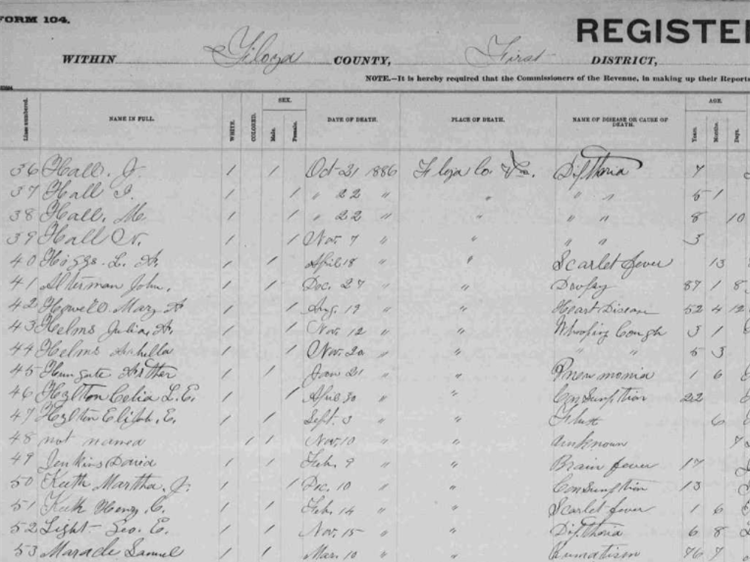 FORM 104.
REGISTER
WITHIN Floyd COUNTY, First DISTRICT,
NOTE.—It is hereby required that the Commissioners of the Revenue, in making up their Reports
Lines numbered. NAME IN FULL. WHITE. COLORED. SEX. Male. Female. DATE OF DEATH. PLACE OF DEATH. NAME OF DISEASE OR CAUSE OF DEATH. AGE. Years. Months. Days.
36 Hall, J. 1 1 Oct 21 1886 Floyd Co. Va. Dipthoria 7
37 Hall I. 1 1 " 22 " " " " 5 1
38 Hall, M. 1 1 " 22 " " " 8 10
39 Hall 1 1 Nov. 7 " " " 3
40 L. 1 1 April 18 " " Scarlet fever 13
41 Alterman John. 1 1 Dec. 27 " " Dropsy 87 1 8
42 Howell Mary A 1 1 Aug. 19 " " Heart Disease 52 4 12
43 Helms Julia A. 1 1 Nov. 12 " " Whooping Cough 3 1
44 Helms 1 1 Nov. 20 " " " " 5 3
45 Hungate 1 1 Jan 21 " " Pneumonia 1 6
46 Hylton Celia L. E. 1 1 April 30 " " Consumption 22
47 Hylton Elijah, E. 1 1 Sept. 3 " " 6
48 not named 1 1 Nov. 10 " " unknown 7
49 Jenkins David 1 1 Feb. 9 " " Brain fever 17
50 Keith Martha, J. 1 1 Dec. 10 " " Consumption 13
51 Keith Henry, C. 1 1 Feb. 14 " " Scarlet fever 1 6
52 Light Geo. E. 1 1 Nov. 15 " " Dipthoria 6 8
53 Samuel 1 1 Mar. 10 " " Rumatism 76 7